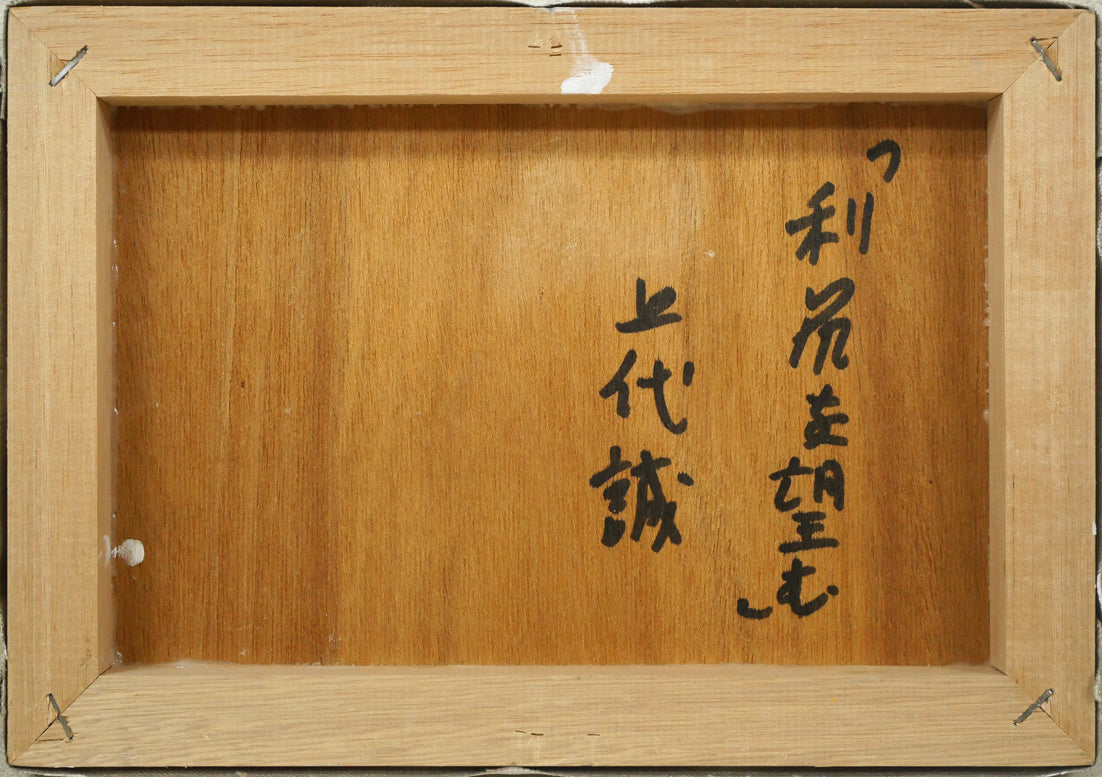 「利尻を望む」
上代誠